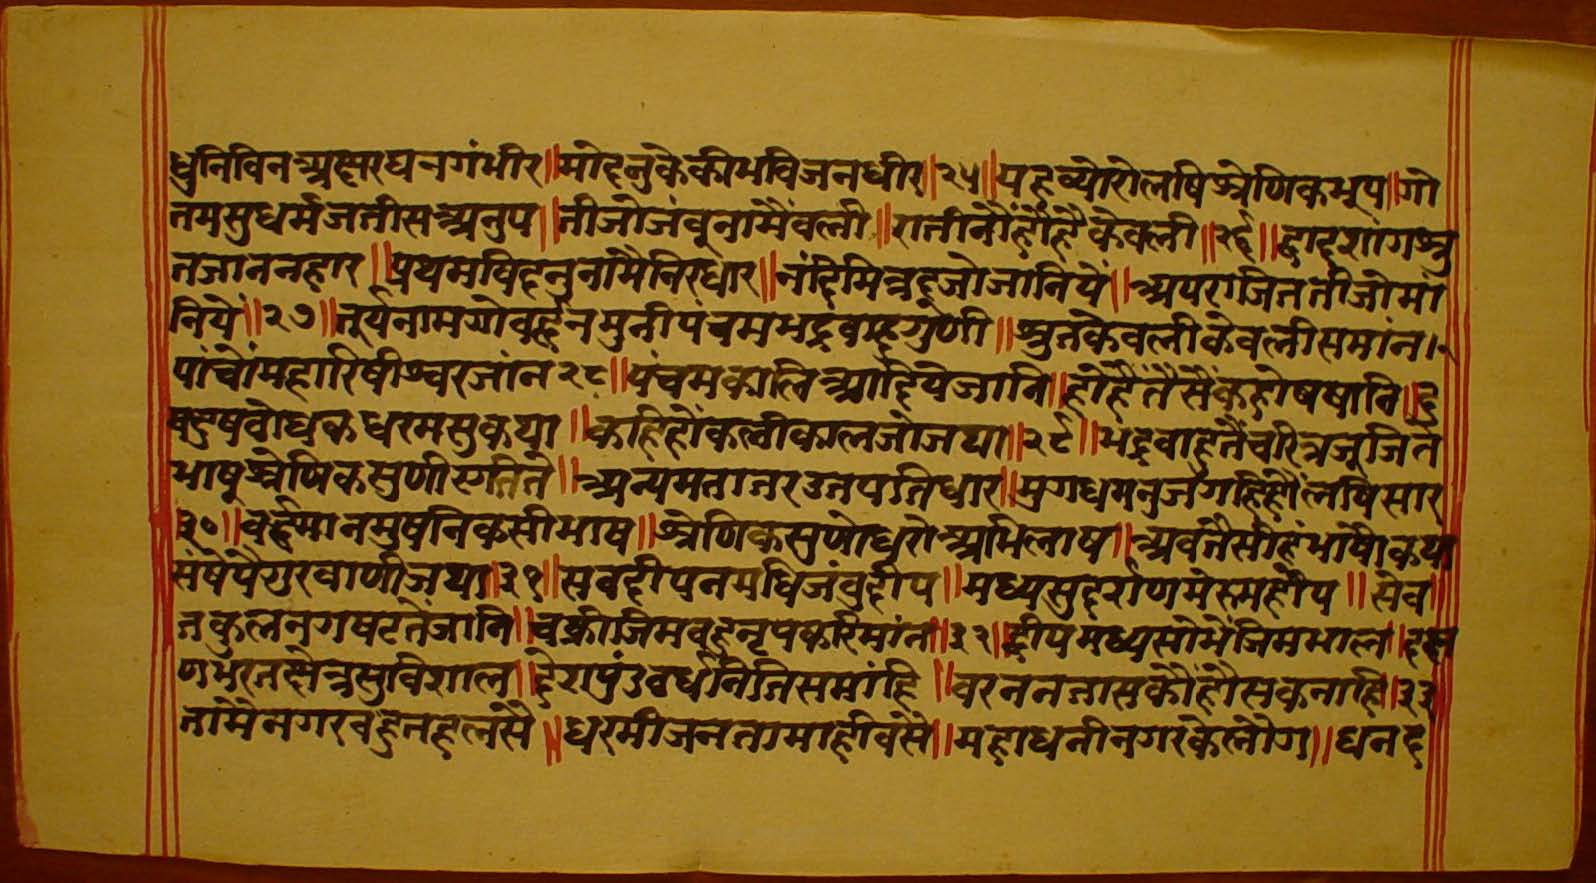 धुनिविनअक्षरघनगंभीर॥मोदनुकेकीभविजनधीर॥२५॥यहव्योरोलषिश्रेणिकभूप॥गो
तमसुधर्मजतीसअनुप॥तीजोजंवुनामैंवली॥रातीनोंह्वैहैकेवली॥२६॥द्वादशांगश्रु
तजाननहार॥प्रथमविहनुनामैनिरधार॥नंदिमित्रदूजोजानियें॥अपराजिततीजोमां
नियें॥२७॥तूर्यनामगोवर्द्धनमुनीपंचमभद्रंवाहुगुणी॥श्रुतकेवलीकेवलीसमांन।
पांचोंमहारिषीश्वरजांन२८॥पंचमकालिआदियेजानि॥होहैंतैसैंकहोषषानि॥६
षटुषवोधकधरमसुकथा॥कहिहोंकलीकालजोजथा॥२९॥भद्रवाहुतैंचरित्रजुजिते
भाषुश्रेणिकसुणीसतिते॥अन्यमताजरउतपतिधार॥मुगधमनुजगहिहौंलषिसार
३०॥वर्द्धमानमुषनिकसीभाष॥श्रेणिकसुणोधरोअभिलाष॥अवतैसीहंभाषोकथा
संषेपैगुरवाणीजथा॥३१॥सवद्दीपनमधिजंवुद्दीप॥मध्यसुदर्शणमेरुमहीप॥सेव
तकुलनगषटतेंजानि॥चक्रीजिमवहुनृपकरिमांन॥३२॥द्वीपमध्यसोभेंजिमभाल॥दक्ष
णभरतक्षेत्रसुविशाल॥देशपुंडवर्धनतिसमांहि॥वरननतासकौंहौसकनाहि॥३३
तामैनगरवहुतहलसै॥धरमीजनतामाहीवसै॥महाधनीनगरकेलोग॥धनद